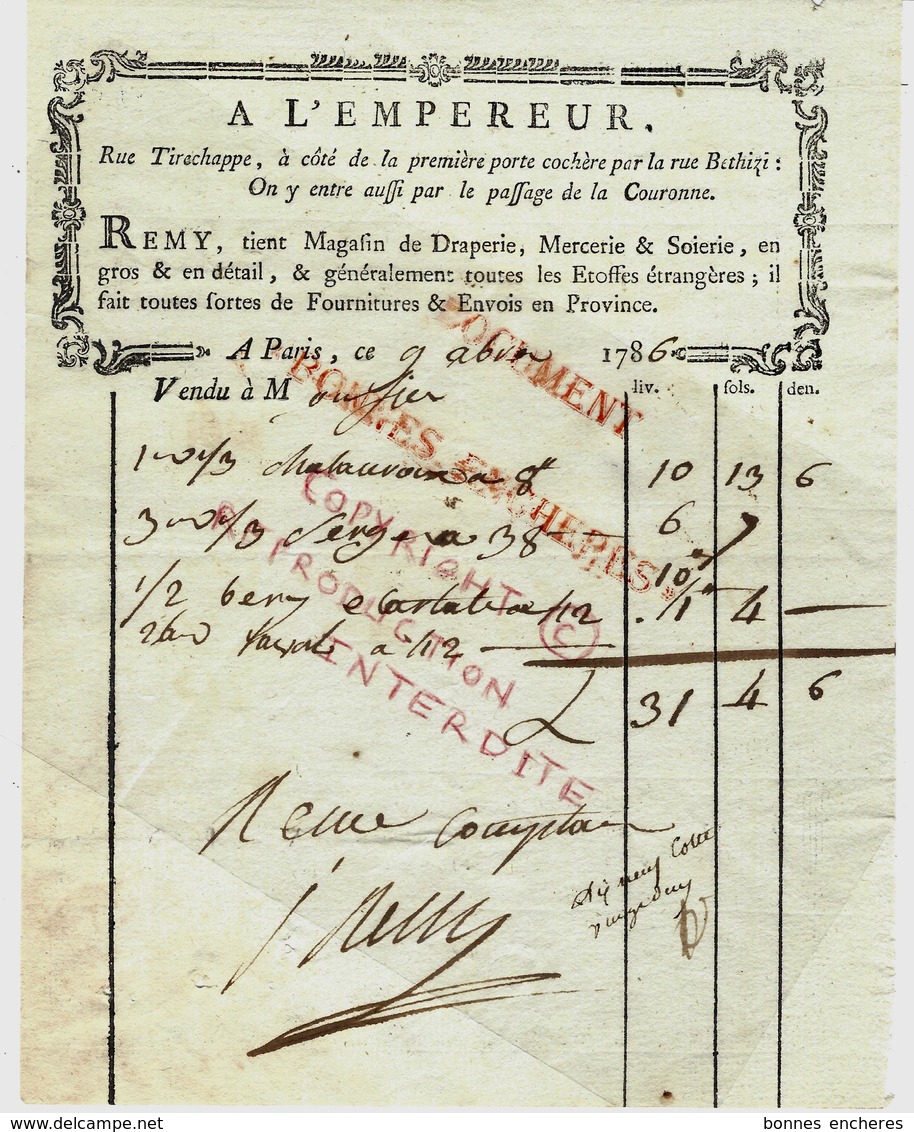 A L'EMPEREUR.
Rue Tirechappe, à côté de la première porte cochère par la rue Bethizi :
On y entre auſſi par le paſſage de la Couronne.
REMY, tient Magaſin de Draperie, Mercerie & Soierie, en
gros & en détail, & généralement toutes les Etoffes étrangères ; il
fait toutes ſortes de Fournitures & Envois en Province.
A PARIS, ce 9 1786
Vendu à M liv. ſols. den.
1 1/3 a 8 10 13 6
3 Serge a 38 6 7
10
1/2 a 12 1 4 —
a 12
31 4 6
Remy
DOCUMENT
BONNES ENCHERES
COPYRIGHT ©
REPRODUCTION
INTERDITE
bonnes encheres